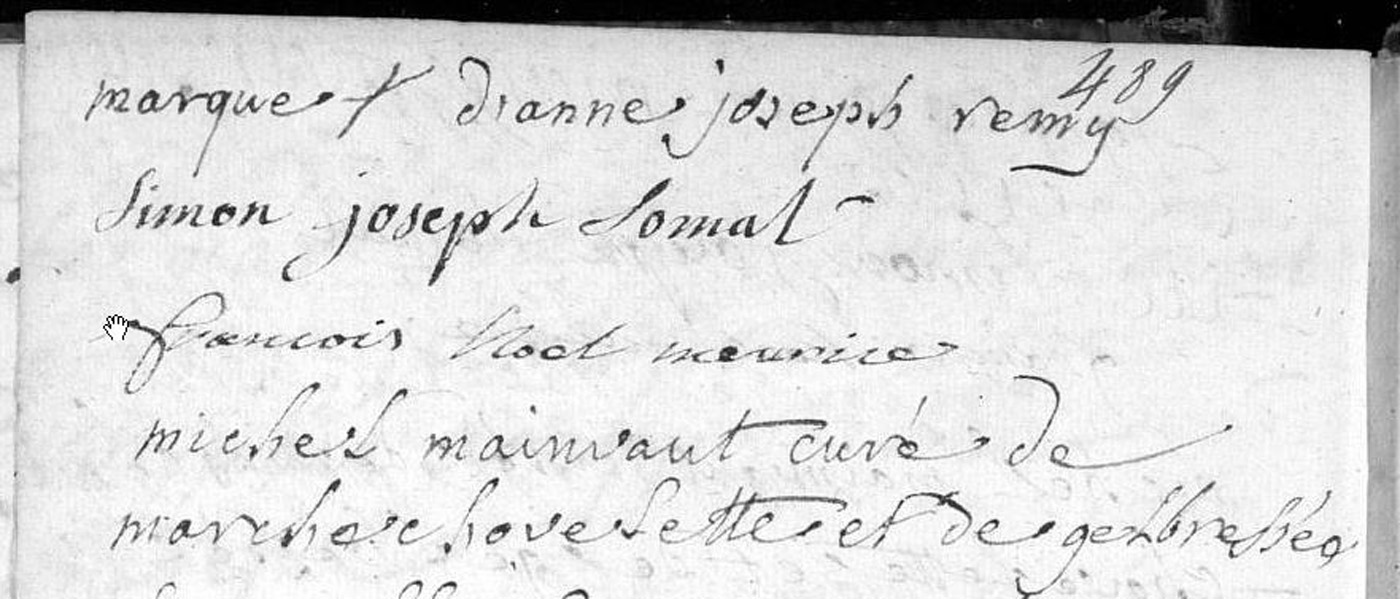 489
marque + dianne joseph remy
Simon joseph Lomal
francois Noel meurice
michel mainvaut curé de
marche choverlette et de gelbressée